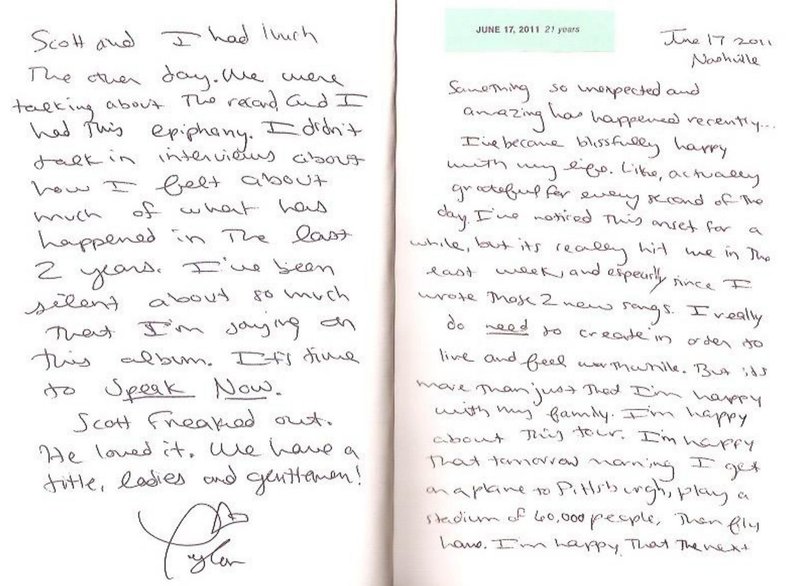 Scott and I had lunch
The other day. We were
talking about The record, and I
had This epiphany. I didn't
talk in interviews about
how I felt about
much of what has
happened in The last
2 years. I've been
silent about so much
That I'm saying on
this album. It's time
to Speak Now.
Scott Freaked out.
He loved it. We have a
title, ladies and gentlemen!
Taylor
JUNE 17, 2011 21 years
June 17 2011
Nashville
Something so unexpected and
amazing has happened recently...
I've become blissfully happy
with my life. Like, actually
grateful for every second of The
day. I've noticed This onset for a
while, but its really hit me in The
last week, and especially since I
wrote Those 2 new songs. I really
do need to create in order to
live and feel worthwhile. But its
more Than just That I'm happy
with my family. I'm happy
about This tour. I'm happy
That tomorrow morning I get
on a plane to Pittsburgh, play a
stadium of 60,000 people, Then fly
home. I'm happy That The next